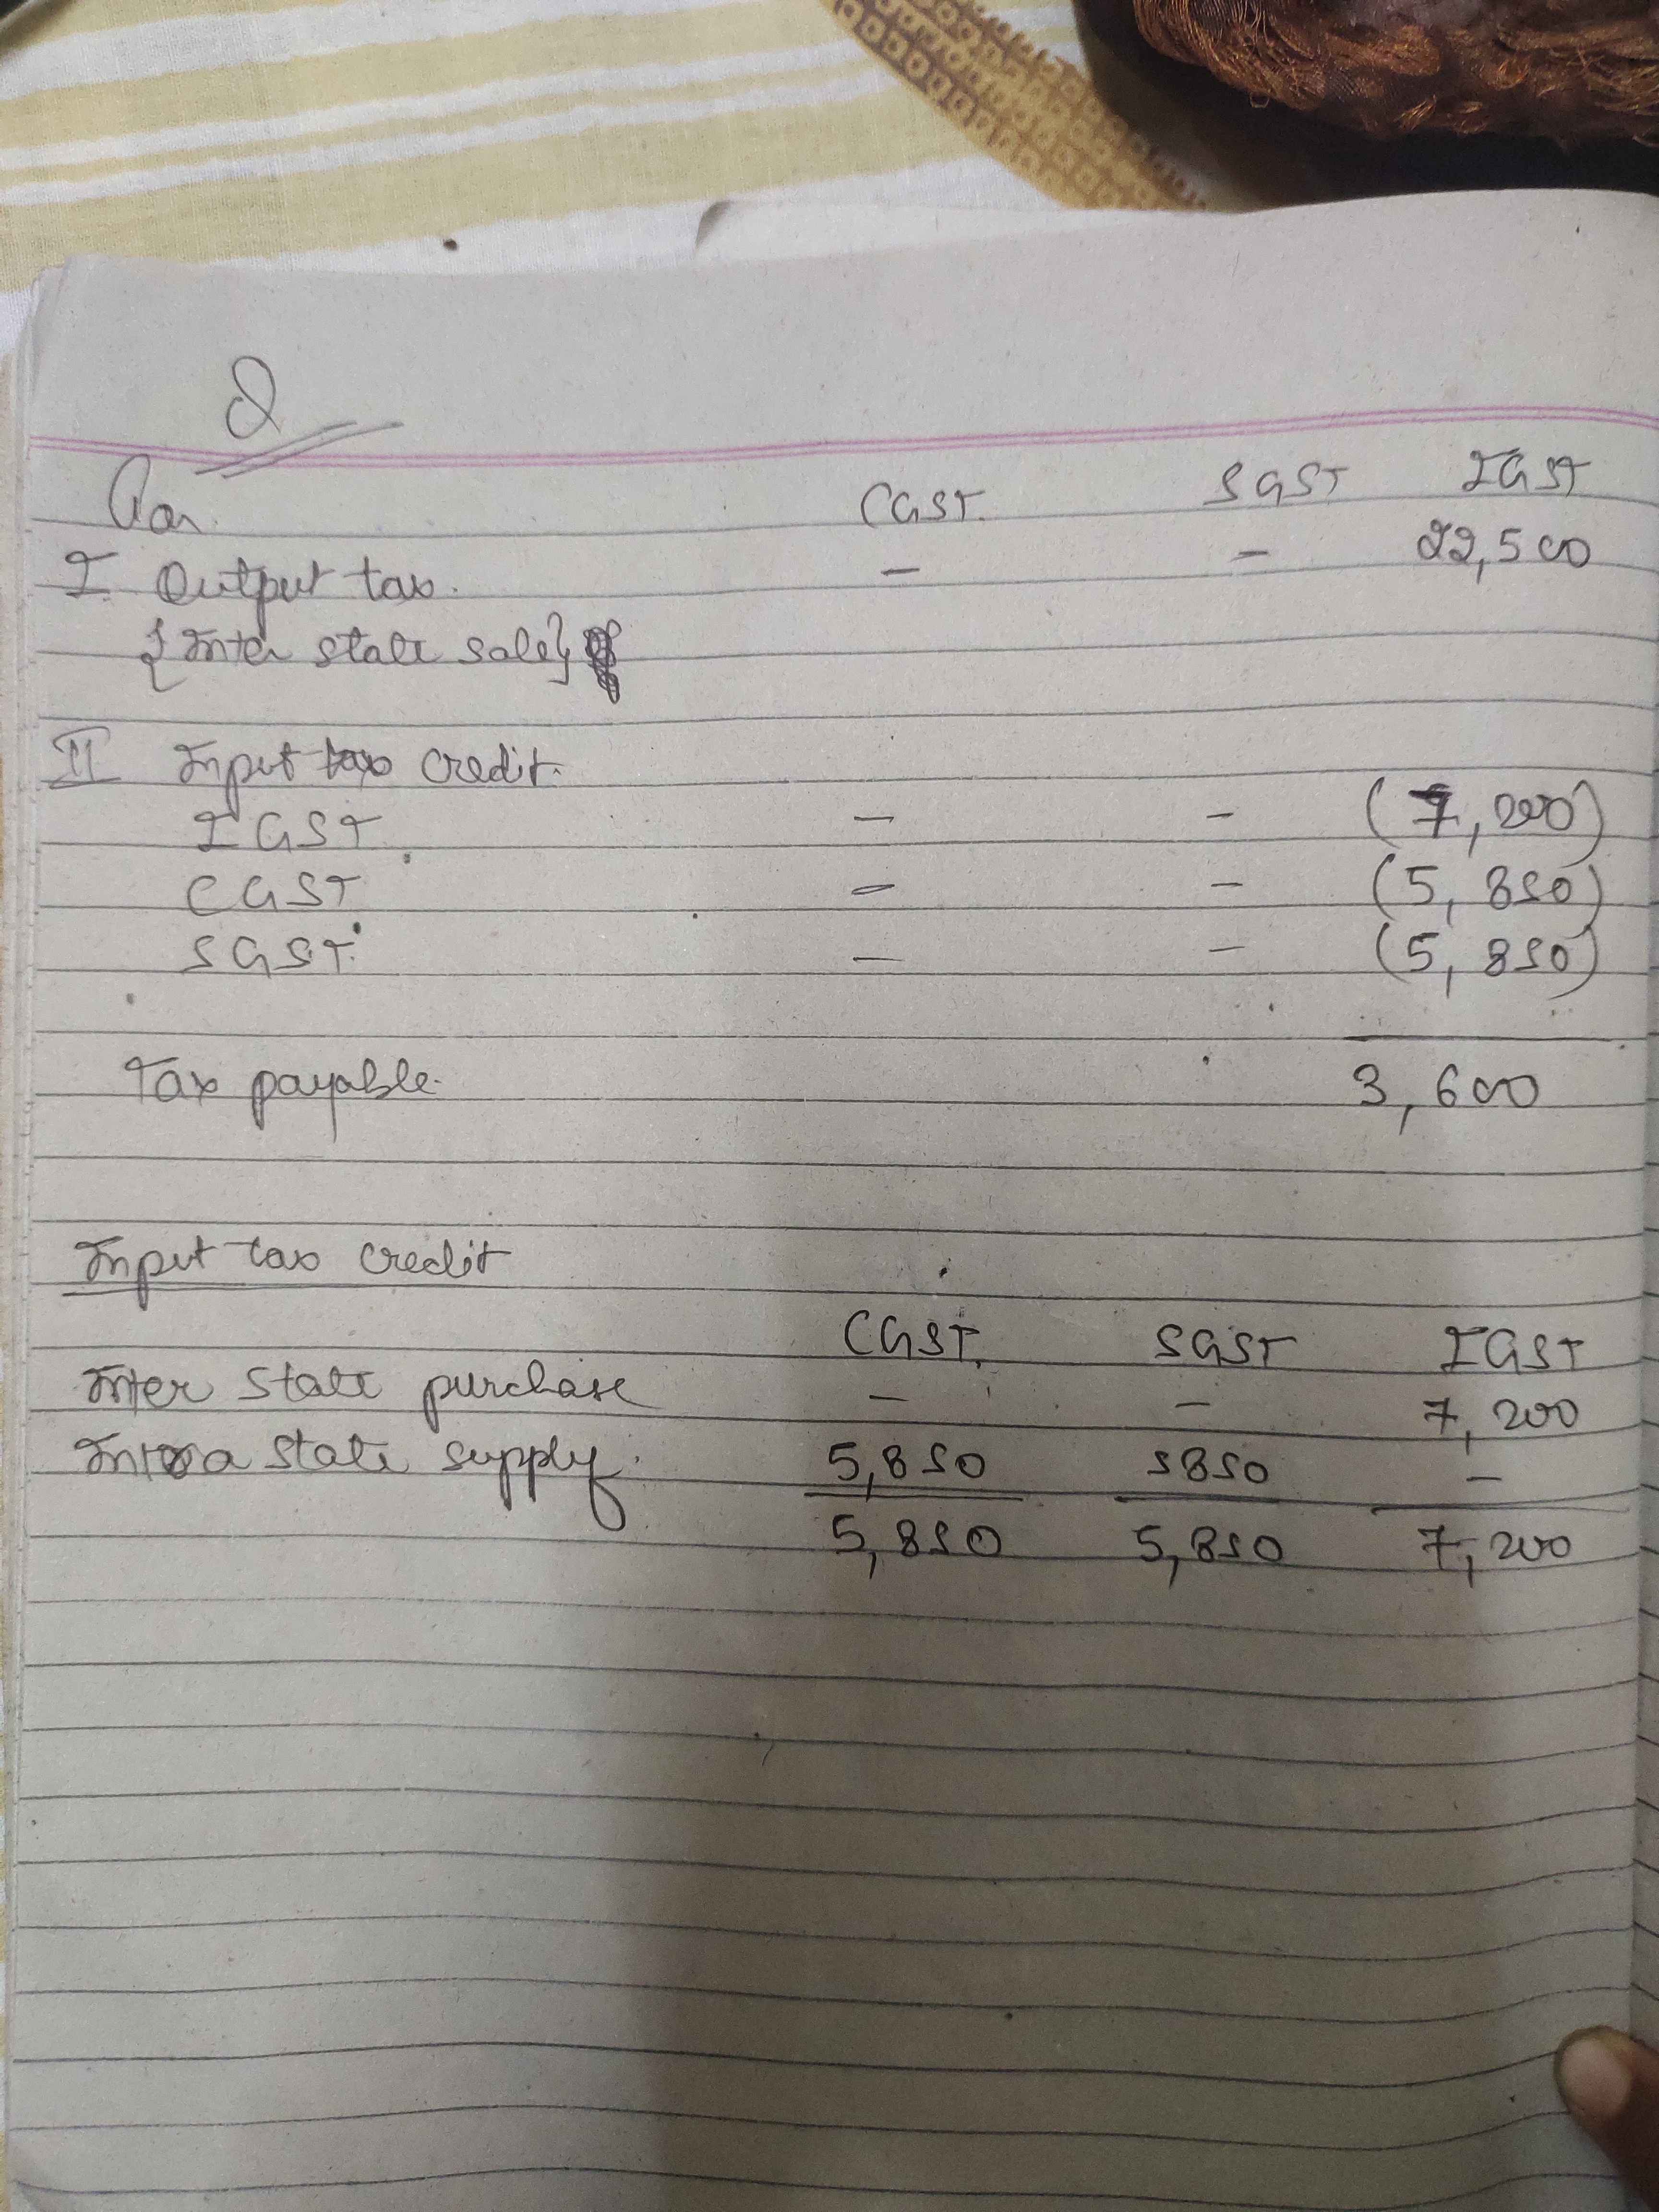 Q
Par. CGST. SGST IGST
I Output tax. - - 22,500
{Inter state sale}
II Input tax credit.
IGST - - (7,200)
CGST - - (5,850)
SGST. - - (5,850)
Tax payable. 3,600
Input tax credit
CGST. SGST IGST
Inter state purchase - - 7,200
Intra state supply. 5,850 5850 -
5,850 5,850 7,200